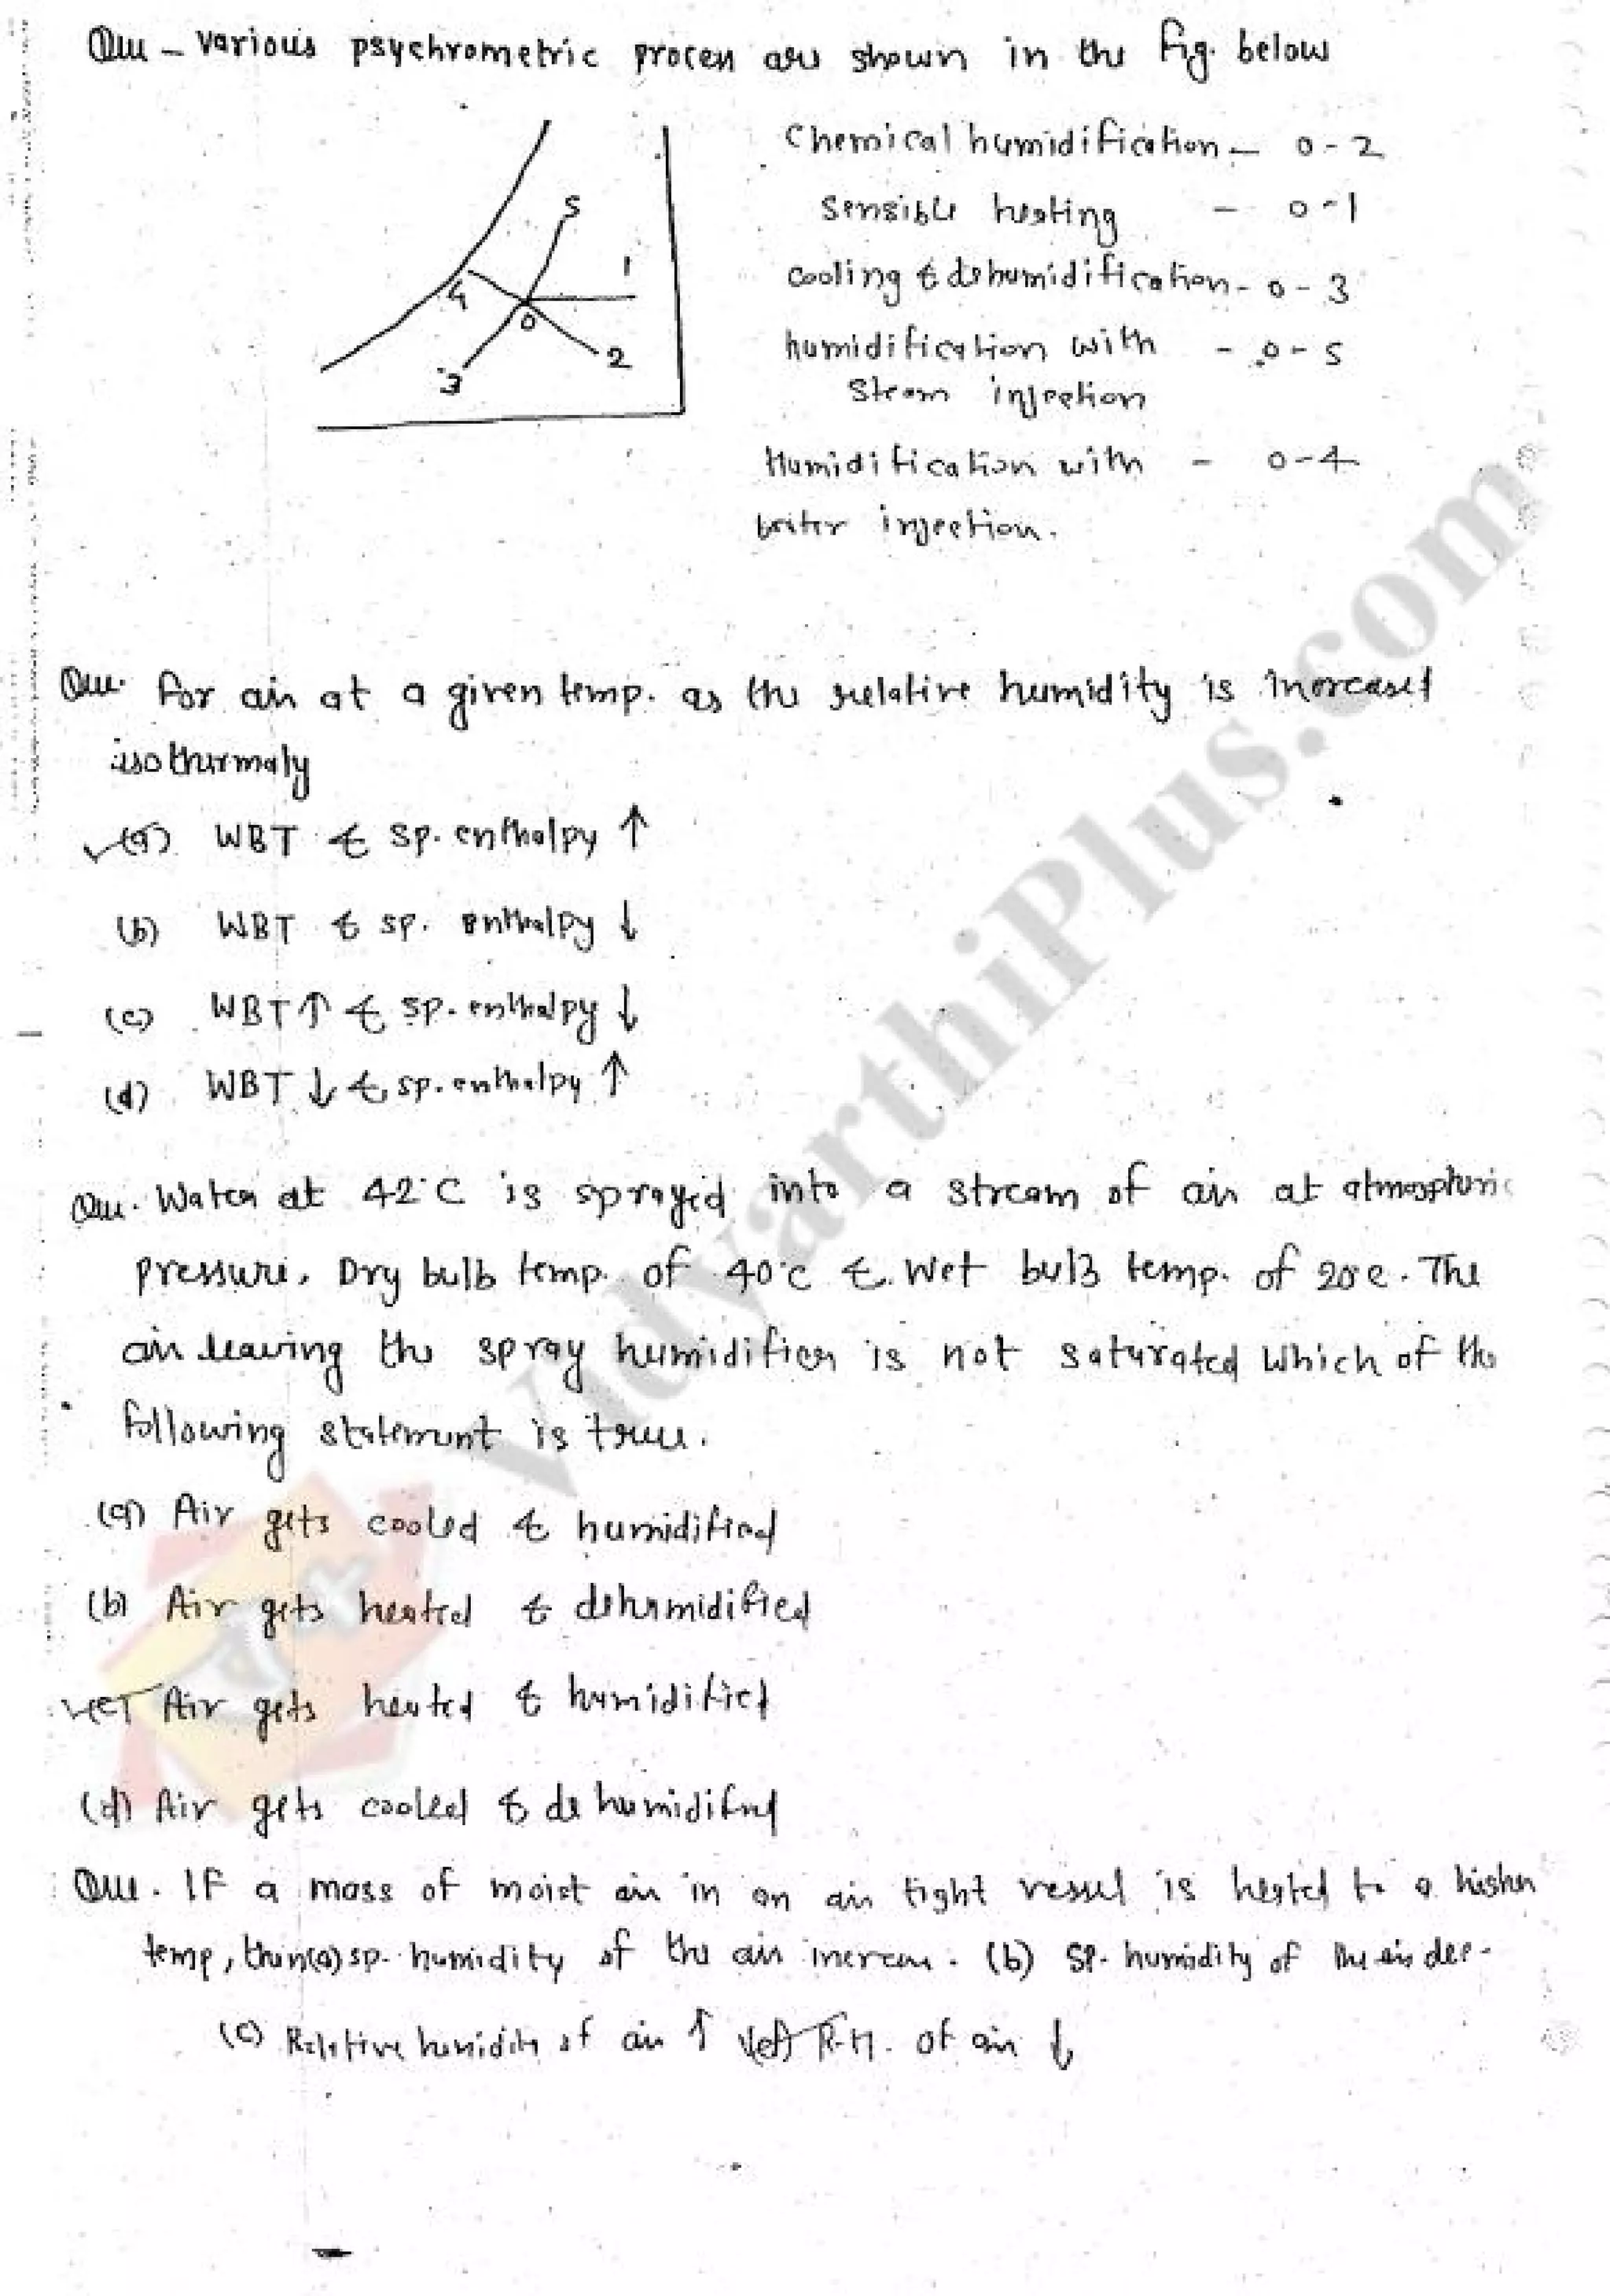 Que - Various psychrometric process are shown in the fig. below
Chemical humidification - 0-2
Sensible heating - 0-1
Cooling & dehumidification - 0-3
humidification with - 0-5
Steam injection
Humidification with - 0-4
water injection.
5
1
4
0
2
3
Que. For air at a given temp. as the relative humidity is increased
isothermaly
(a) WBT & sp. enthalpy ↑
(b) WBT & sp. enthalpy ↓
(c) WBT ↑ & sp. enthalpy ↓
(d) WBT ↓ & sp. enthalpy ↑
Que. Water at 42°C is sprayed into a stream of air at atmospheric
pressure. Dry bulb temp. of 40°C & Wet bulb temp. of 20°C. The
air leaving the spray humidifier is not saturated which of the
following statement is true.
(a) Air gets cooled & humidified
(b) Air gets heated & dehumidified
(c) Air gets heated & humidified
(d) Air gets cooled & dehumidified
Que. If a mass of moist air in an air tight vessel is heated to a higher
temp, then (a) sp. humidity of the air increase. (b) sp. humidity of the air dec-
(c) Relative humidity of air ↑ R.H. of air ↓
VidyarthiPlus.com